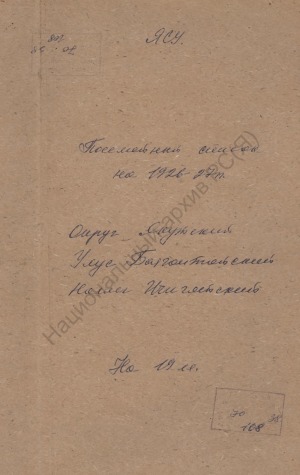 ЯСУ.
Посемейный список
на 1926-27 гг.
Округ Якутский
Улус Баягантайский
Наслег Игидейский
На 19 лл.
Национальный архив РС(Я)
70 78
108